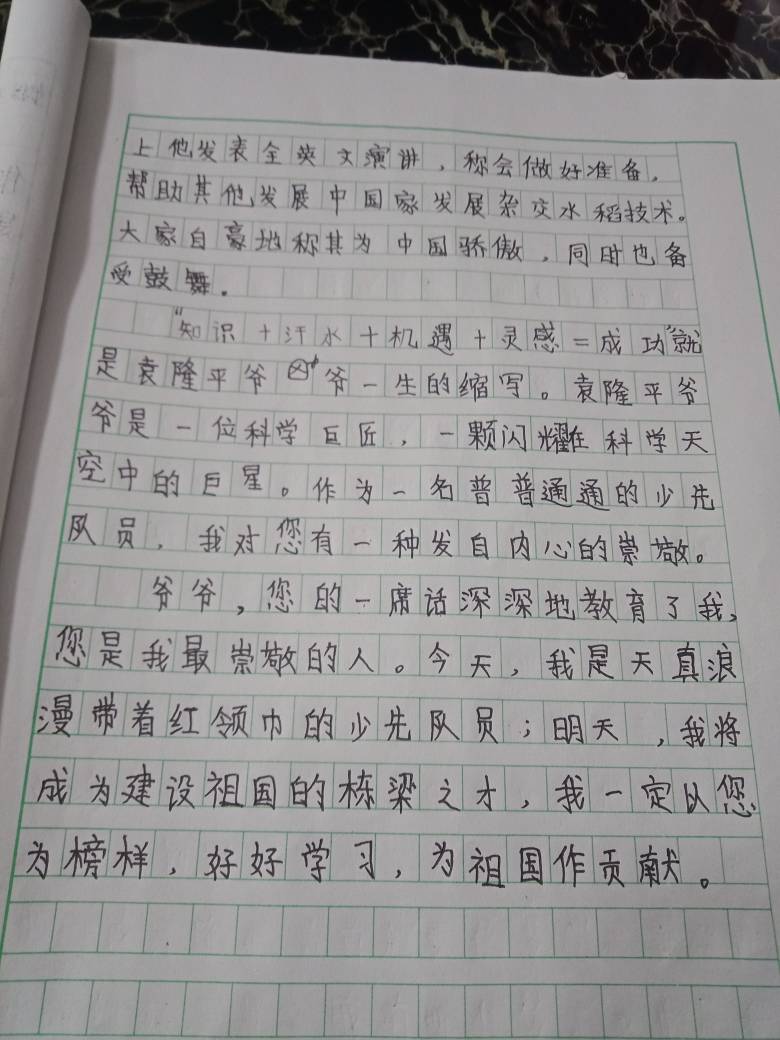 上他发表全英文演讲，称会做好准备，
帮助其他发展中国家发展杂交水稻技术。
大家自豪地称其为中国骄傲，同时也备
受鼓舞。
“知识+汗水+机遇+灵感=成功”就
是袁隆平爷爷一生的缩写。袁隆平爷
爷是一位科学巨匠，一颗闪耀在科学天
空中的巨星。作为一名普普通通的少先
队员，我对您有一种发自内心的崇敬。
爷爷，您的一席话深深地教育了我，
您是我最崇敬的人。今天，我是天真浪
漫带着红领巾的少先队员；明天，我将
成为建设祖国的栋梁之才，我一定以您
为榜样，好好学习，为祖国作贡献。